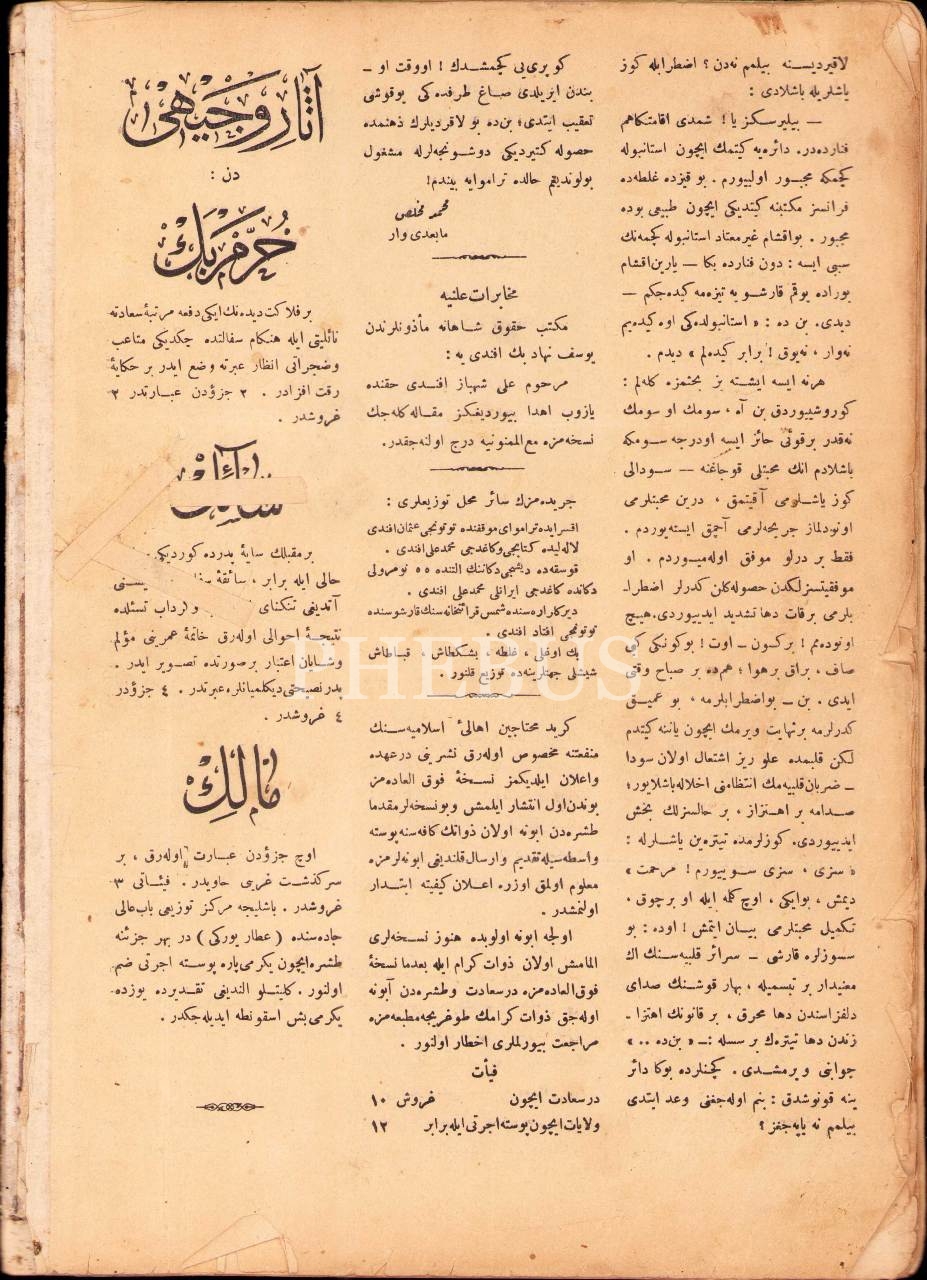 لاقیردیسنه بیلمم نه‌دن ؟ اضطرابله کوز
یاشلریله باشلادی :
— بیلیرسکز یا ! شمدی اقامتکاهم
فنارده‌در. دائره‌یه کیتمك ایچون استانبوله
کچمکه مجبور اولییورم . بو قیزده غلطه‌ده
فرانسز مکتبنه کیتدیکی ایچون طبیعی بوده
مجبور . بواقشام غیرمعتاد استانبوله کچمه‌نك
سببی ایسه : دون فنارده بکا — یارین‌اقشام
بوراده یوقم قارشو یه تیزه‌مه کیده‌جکم —
دیدی. بن ده : « استانبولده‌کی اوه کیده‌یم
نه‌وار ، نه‌یوق ! برابر کیده‌لم » دیدم .
هرنه ایسه ایشته بز بحثمزه کله‌لم :
کوروشییوردق بن آه ، سومك او سومك
نه‌قدر برقوتی حائز ایسه اودرجه سومکه
باشلادم انك محبتلی قوجاغنه — سودالی
کوز یاشلرمی آقیتمق ، درین محبتلرمی
اونودلماز جریحه‌لرمی آچمق ایسته‌یوردم .
فقط بر درلو موفق اوله‌میوردم . او
موفقیتسزلکدن حصوله‌کلن کدرلر اضطرا‌ـ
بلرمی برقات دها تشدید ایدییوردی.هیچ
اونوده‌مم ! برکون ـ اوت ! بوکونکی کبی
صاف ، براق برهوا ؛ هم‌ده بر صباح وقتی
ایدی . بن ـ بواضطرابلرمه ، بو عمیـق
کدرلرمه برنهایت ویرمك ایچون یاننه کیتدم
لکن قلبمده علو ریز اشتعال اولان سودا
ـ ضربان قلبیه‌مك انتظامنی اخلاله‌باشلایور؛
صدامه بر اهتزاز ، بر حالسزلك بخش
ایدییوردی. کوزلرمده تیتره‌ین یاشلرله :
« سزی ، سزی سوییورم ! مرحمت »
دیمش ، بوایکی ، اوچ کله ایله او برچوق ،
تکمیل محبتلرمی بیـان ایتمش ! اوده : بو
سوزلره قارشی ـ سرائر قلبیه‌سنك اك
معنیدار بر تبسمیله ، بهار قوشنك صدای
دلفزاسندن دها محرق ، بر قانونك اهتزا‌ـ
زندن دها تیتره‌ك بر سسله :ـ « بن‌ده .. »
جوابنی ویرمشدی . کچنلرده بوکا دائر
ینه قونوشدق : بنم اوله‌جغنی وعد ایتدی
بیلمم نه یاپه‌جغز ؟
کوپری‌یی کچمشدك ! اووقت او ـ
بندن ایریلدی صاغ طرفده‌کی یوقوشی
تعقیب ایتدی؛ بن‌ده بو لاقردیلرك ذهنمده
حصوله کتیردیکی دوشونجه‌لرله مشغول
بولوندیغم حالده تراموایه بیندم!
محمد مخلص
مابعدی وار
مخابرات علنیه
مکتب حقوق شاهانه مأذونلرندن
یوسف نهاد بك افندی یه :
مرحوم علی شهباز افندی حقنده
یازوب اهدا بیوردیغکز مقاله کله‌جك
نسخه‌مزه مع‌الممنونیه درج اولنه‌جقدر.
جریده‌مزك سائر محل توزیعلری :
اقسرایده تراموای موقفنده توتونجی عثمان‌افندی
لاله‌لیده کتابجی‌وکاغدجی محمدعلی افندی .
قوسقه‌ده دیشجی دکاننك التنده ٥٥ نومرولی
دکانده کاغدجی ایرانلی محمدعلی افندی .
دیرکلرآره‌سنده شمس قرائتخانه‌سنك قارشوسنده
توتونجی افتاد افندی .
بك اوغلی ، غلطه ، بشکطاش ، قباطاش
شیشلی جهتلرینه‌ده توزیع قلنور .
کرید محتاجین اهالئ اسلامیه‌سنك
منفعتنه مخصوص اوله‌رق نشرینی درعهده
واعلان ایلدیکمز نسخهٔ فوق العاده‌مز
بوندن‌اول انتشار ایلمش وبونسخه‌لرمقدما
طشره‌دن ابونه اولان ذواتك کافه‌سنه پوسته
واسطه‌سیله‌تقدیم وارسال‌قلندیغی ابونه‌لرمزه
معلوم اولمق اوزره اعلان کیفیته ابتدار
اولنمشدر .
اولجه ابونه اولوبده هنوز نسخه‌لری
الامامش اولان ذوات کرام ایله بعدما نسخهٔ
فوق‌العاده‌مزه درسعادت وطشره‌دن آبونه
اوله‌جق ذوات کرامك طوغریجه‌مطبعه‌مزه
مراجعت بیورلملری اخطار اولنور .
فیأت
درسعادت ایچون غروش ١٠
ولایات‌ایچون‌پوسته‌اجرتی‌ایله‌برابر ١٢
آثار وجیهی
دن :
خرم بك
بر فلاکت‌دیده‌نك‌ایکی‌دفعه مرتبهٔ سعادته
نائلیتی ایله هنکام سفالتنده چکدیکی متاعب
وضجراتی انظار عبرته وضع ایدر بر حکایهٔ
رقت افزادر . ٢ جزؤدن عبارتدر ٢
غروشدر .
بر مقبلك سایهٔ پدرده کوردیکی
حالی ایله برابر ، سائقهٔ
آتدیغی تنکنای ولرداب تسئلده
نتیجهٔ احوالی اوله‌رق خاتمهٔ عمرینی مؤلم
وشایان اعتبار برصورتده تصویر ایدر .
پدر نصیحتی دیکلمیانلره‌عبرتدر . ٤ جزؤدر
٤ غروشدر .
مالك
اوچ جزؤدن عبارت اوله‌رق ، بر
سرکذشت غریبی حاویدر . فیئاتی ٣
غروشدر . باشلیجه مرکز توزیعی باب‌عالی
جاده‌سنده ( عطار یورکی ) در بهر جزئنه
طشره‌ایچون یکرمی‌پاره پوسته اجرتی ضم
اولنور . کلیتلو الندیغی تقدیرده یوزده
یکرمی‌بش اسقونطه ایدیله‌جکدر.
PHEBUS